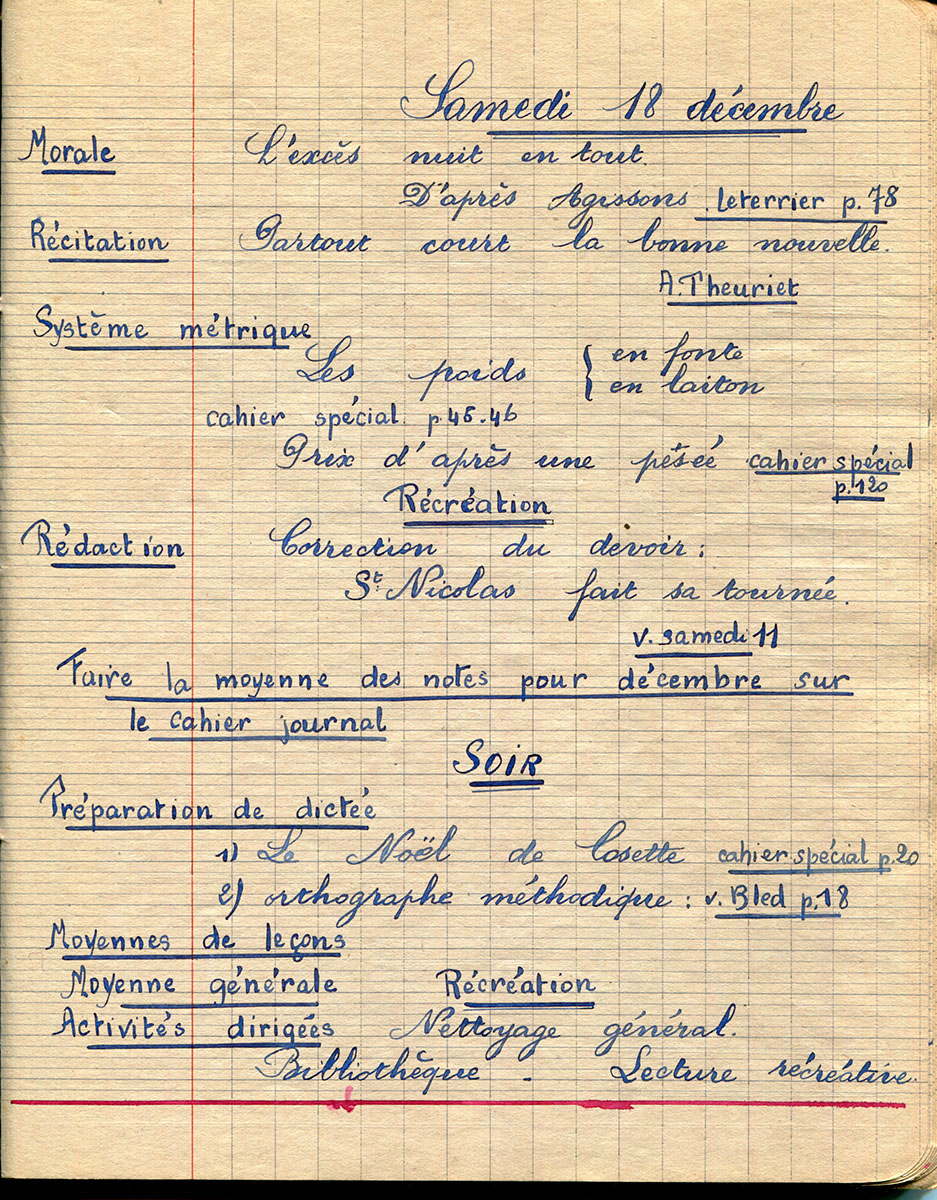 Samedi 18 décembre
Morale L'excès nuit en tout.
D'après Agissons. Leterrier p.78
Récitation Partout court la bonne nouvelle.
A.Theuriet
Système métrique
Les poids { en fonte
en laiton
cahier spécial p.45.46
Prix d'après une pesée cahier spécial
p.120
Récréation
Rédaction Correction du devoir :
St Nicolas fait sa tournée.
v. samedi 11
Faire la moyenne des notes pour décembre sur
le cahier journal
SOIR
Préparation de dictée
1) Le Noël de Cosette cahier spécial p.20
2) orthographe méthodique : v. Bled p.18
Moyennes de leçons
Moyenne générale Récréation
Activités dirigées Nettoyage général.
Bibliothèque - Lecture récréative.